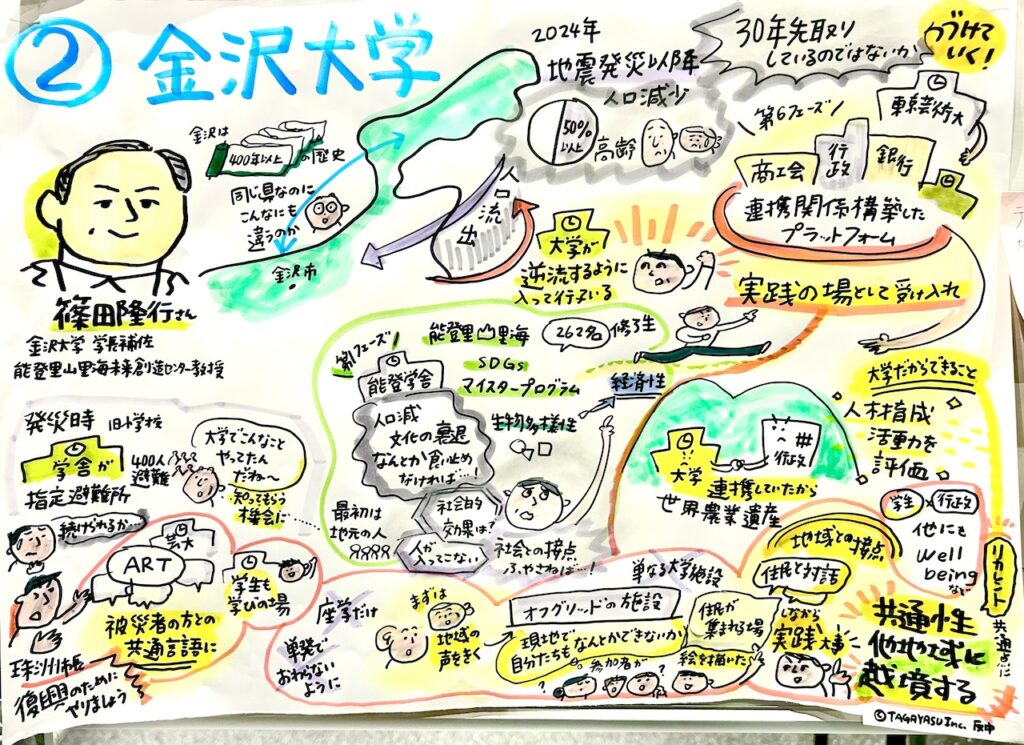 ② 金沢大学
篠田隆行さん
金沢大学 学長補佐
能登里山里海未来創造センター教授
金沢は
400年以上の歴史
同じ県なのに
こんなにも
違うのか
金沢市
2024年
地震発災以降
人口減少
50%
以上
高齢
人口
流出
大学が
逆流するように
入って行っている
30年先取り
しているのではないか
つづけて
いく!
第6フェーズ!
東京芸術大
商工会
行政
銀行
連携関係構築した
プラットフォーム
実践の場として受け入れ
第1フェーズ!
能登学舎
能登里山里海
SDGs
マイスタープログラム
262名
修了生
人口減
文化の衰退
なんとか食い止め
なければ…!
生物多様性
経済性
最初は
地元の人
社会的
効果は?
人が
入ってこない
社会との接点
ふやさねば…!
大学
行政
連携していたから
世界農業遺産
大学だからできること
人材育成
活動力を
評価
発災時 旧小学校
学舎が
指定避難所
400人
避難
大学でこんなこと
やってたん
だね〜
知ってもらう
機会に…
続けられるか…
芸大
ART
被災者の方との
共通言語に
学生も
学びの場
珠洲市長
復興のために
やりましょう
座学だけ
単発で
おわらない
ように
まずは
地域の
声をきく
単なる大学施設
オフグリッドの施設
現地で
自分たちもなんとかできないか
参加者が
住民が
集まれる場
絵を描いた
地域との接点
住民と対話
しながら
実践大事
学生×行政
他にも
well
beingなど
リカレント
共通点に
共通性
他地域に
越境する
©TAGAYASU Inc.